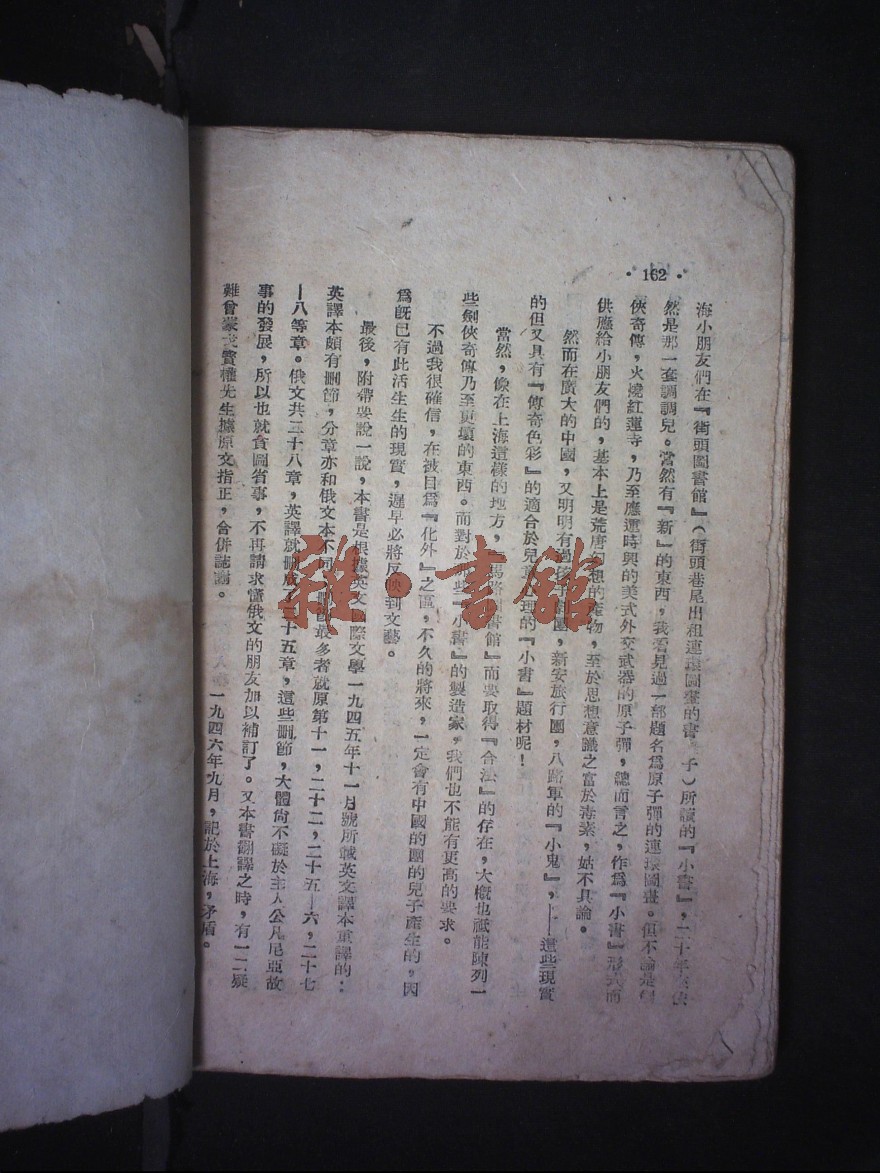 ·162·
海小朋友們在『街頭圖書館』（街頭巷尾出租連環圖畫的書 子）所讀的『小書』，二十年
然是那一套調調兒。當然有『新』的東西，我看見過一部題名爲原子彈的連環圖畫。但不論是劍
俠奇傳，火燒紅蓮寺，乃至應運時興的美式外交武器的原子彈，總而言之，作爲『小書』形式而
供應給小朋友們的，基本上是荒唐幻想的產物，至於思想意識之富於毒素，姑不具論。
然而在廣大的中國，又明明有過孩子劇團，新安旅行團，八路軍的『小鬼』，——這些現實
的但又具有『傳奇色彩』的適合於兒童心理的『小書』題材呢！
當然，像在上海這樣的地方，『馬路圖書館』而要取得『合法』的存在，大概也祇能陳列一
些劍俠奇傳乃至更壞的東西。而對於那些『小書』的製造家，我們也不能有更高的要求。
不過我很確信，在被目爲『化外』之區，不久的將來，一定會有中國的團的兒子產生的，因
爲旣已有此活生生的現實，遲早必將反映到文藝。
最後，附帶要說一說，本書是根據英文國際文學一九四五年十一月號所載英文譯本重譯的：
英譯本頗有删節，分章亦和俄文本不同，删節最多者就原第十一，二十二，二十五—六，二十七
—八等章。俄文共三十八章，英譯就删成了二十五章，這些删節，大體尙不礙於主人公凡尼亞故
事的發展，所以也就貪圖省事，不再請求懂俄文的朋友加以補訂了。又本書翻譯之時，有一二疑
難曾蒙戈寶權先生據原文指正，合併誌謝。
一九四六年九月，記於上海，矛盾。
雜·書館